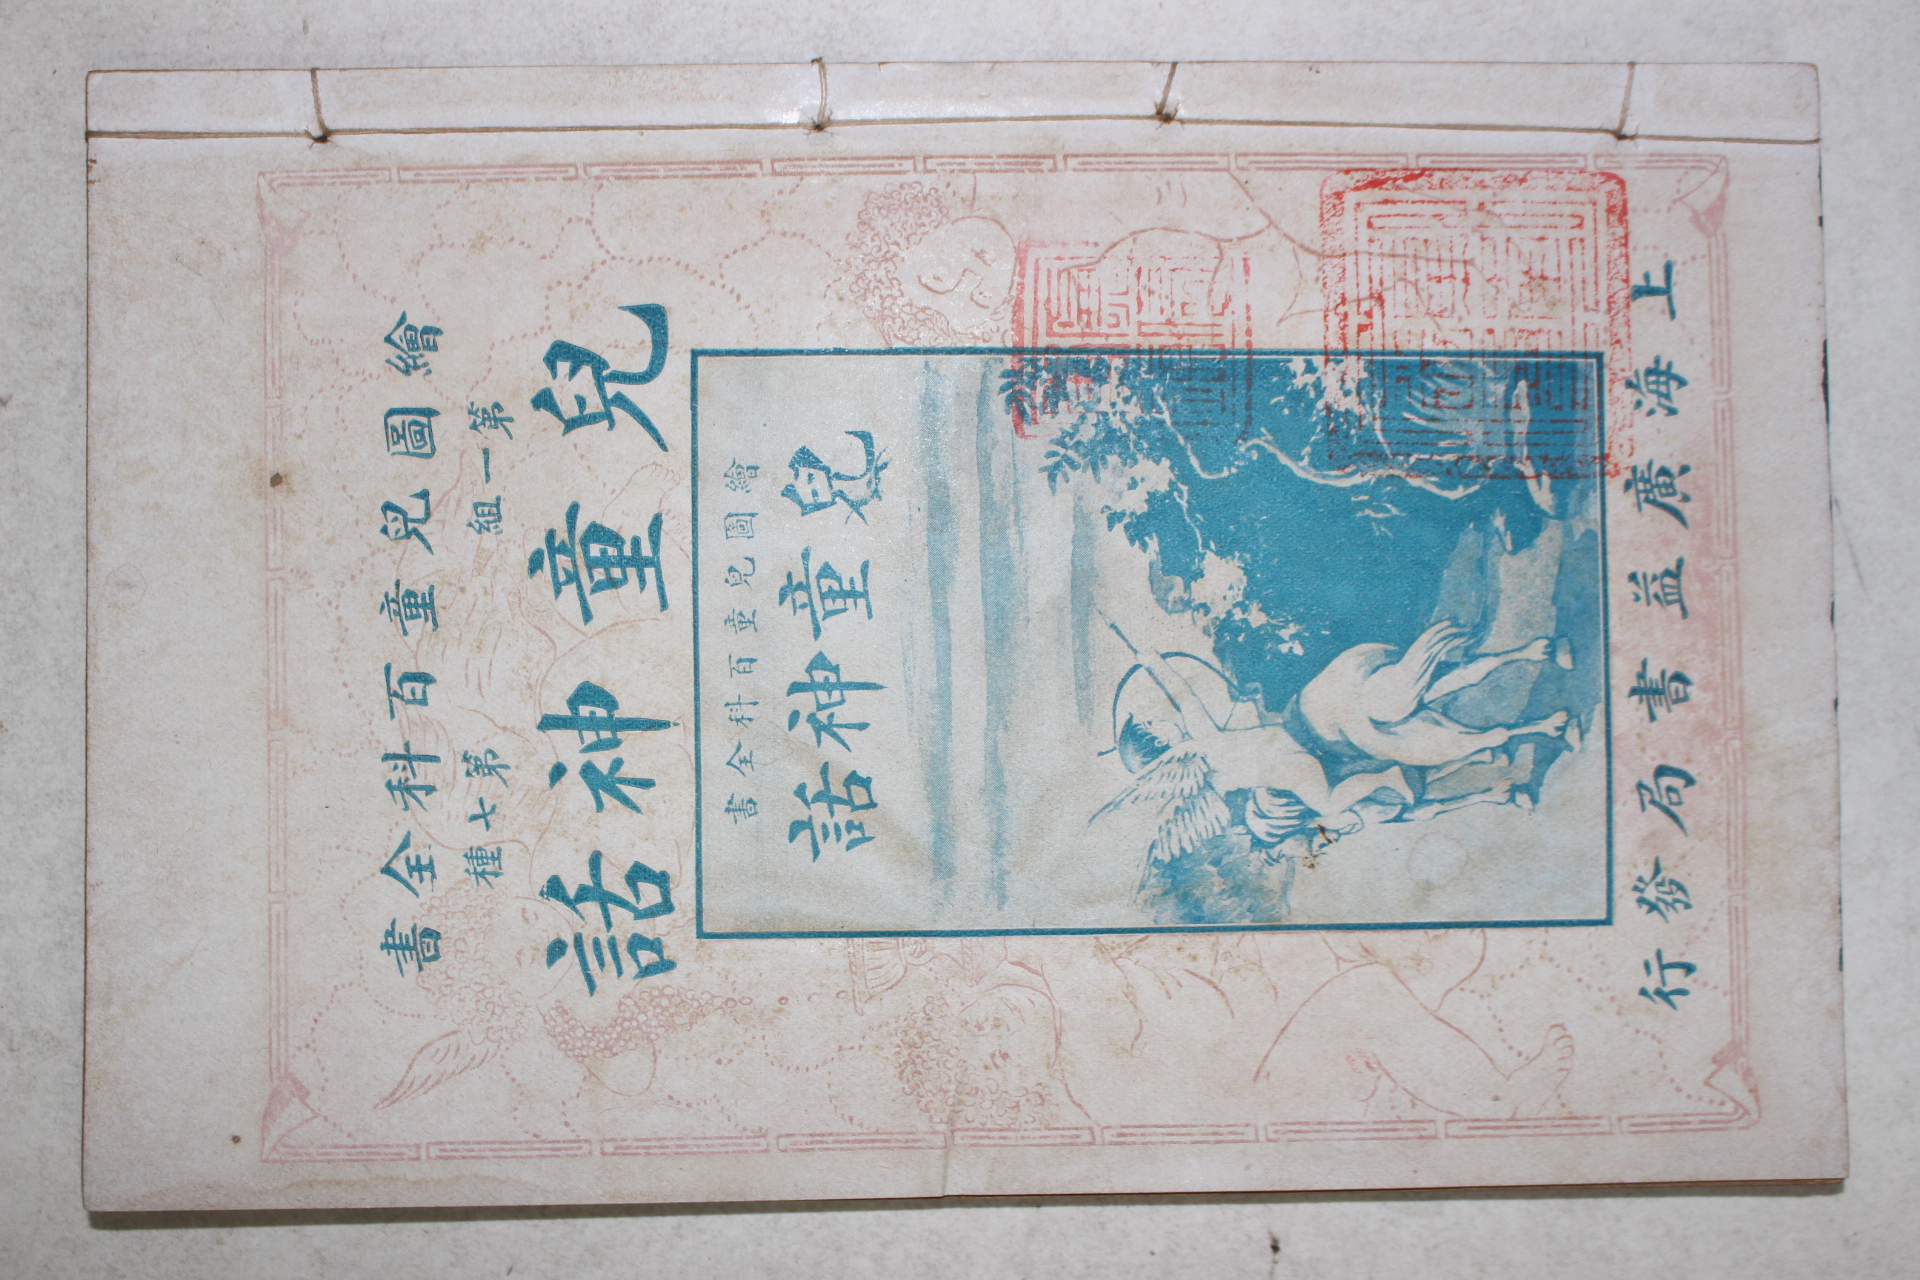 繪圖兒童百科全書
第一組 第七種
兒童神話
繪圖兒童百科全書
兒童神話
上海廣益書局發行